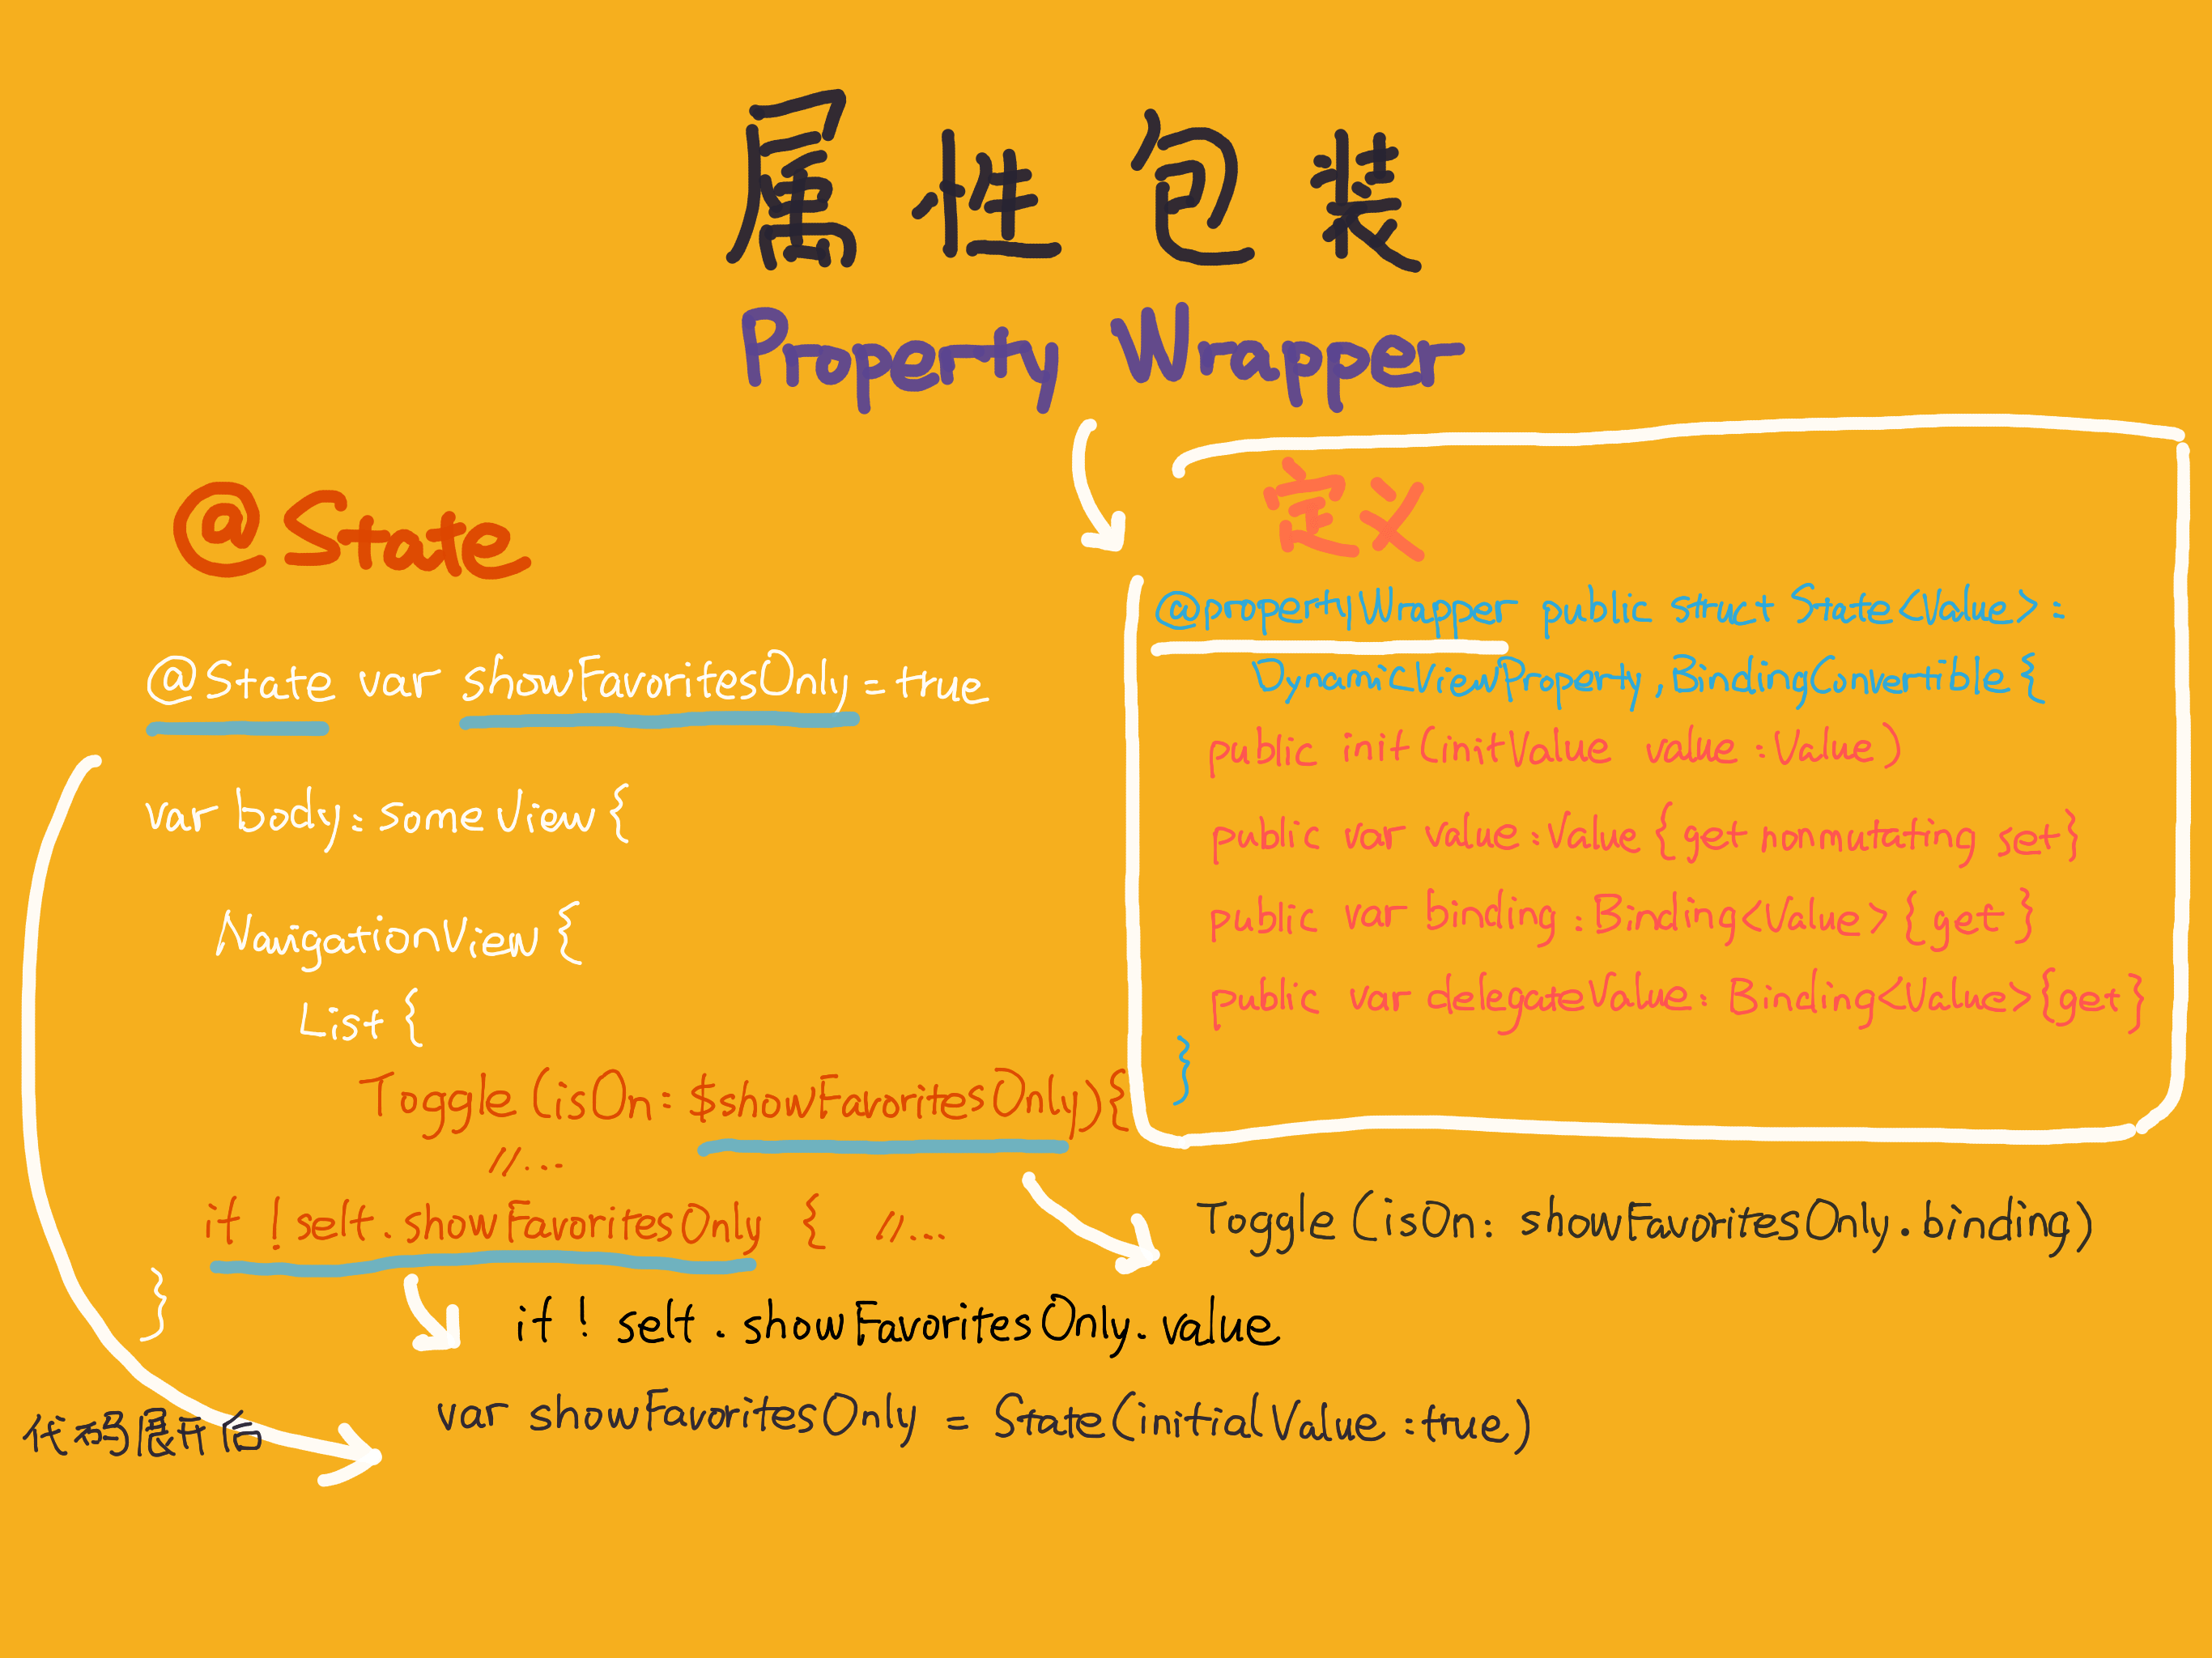 属性包装
Property Wrapper
@State
@State var showFavoritesOnly = true
var body: some View {
NavigationView {
List {
Toggle (isOn: $showFavoritesOnly) {
//...
if ! self.showFavoritesOnly { //...
}
定义
@propertyWrapper public struct State<Value>:
DynamicViewProperty, BindingConvertible {
public init(initValue value: Value)
public var value: Value { get nonmutating set }
public var binding: Binding<Value> { get }
public var delegateValue: Binding<Value> { get }
}
Toggle (isOn: showFavoritesOnly.binding)
if ! self.showFavoritesOnly.value
代码展开后
var showFavoritesOnly = State(initialValue: true)